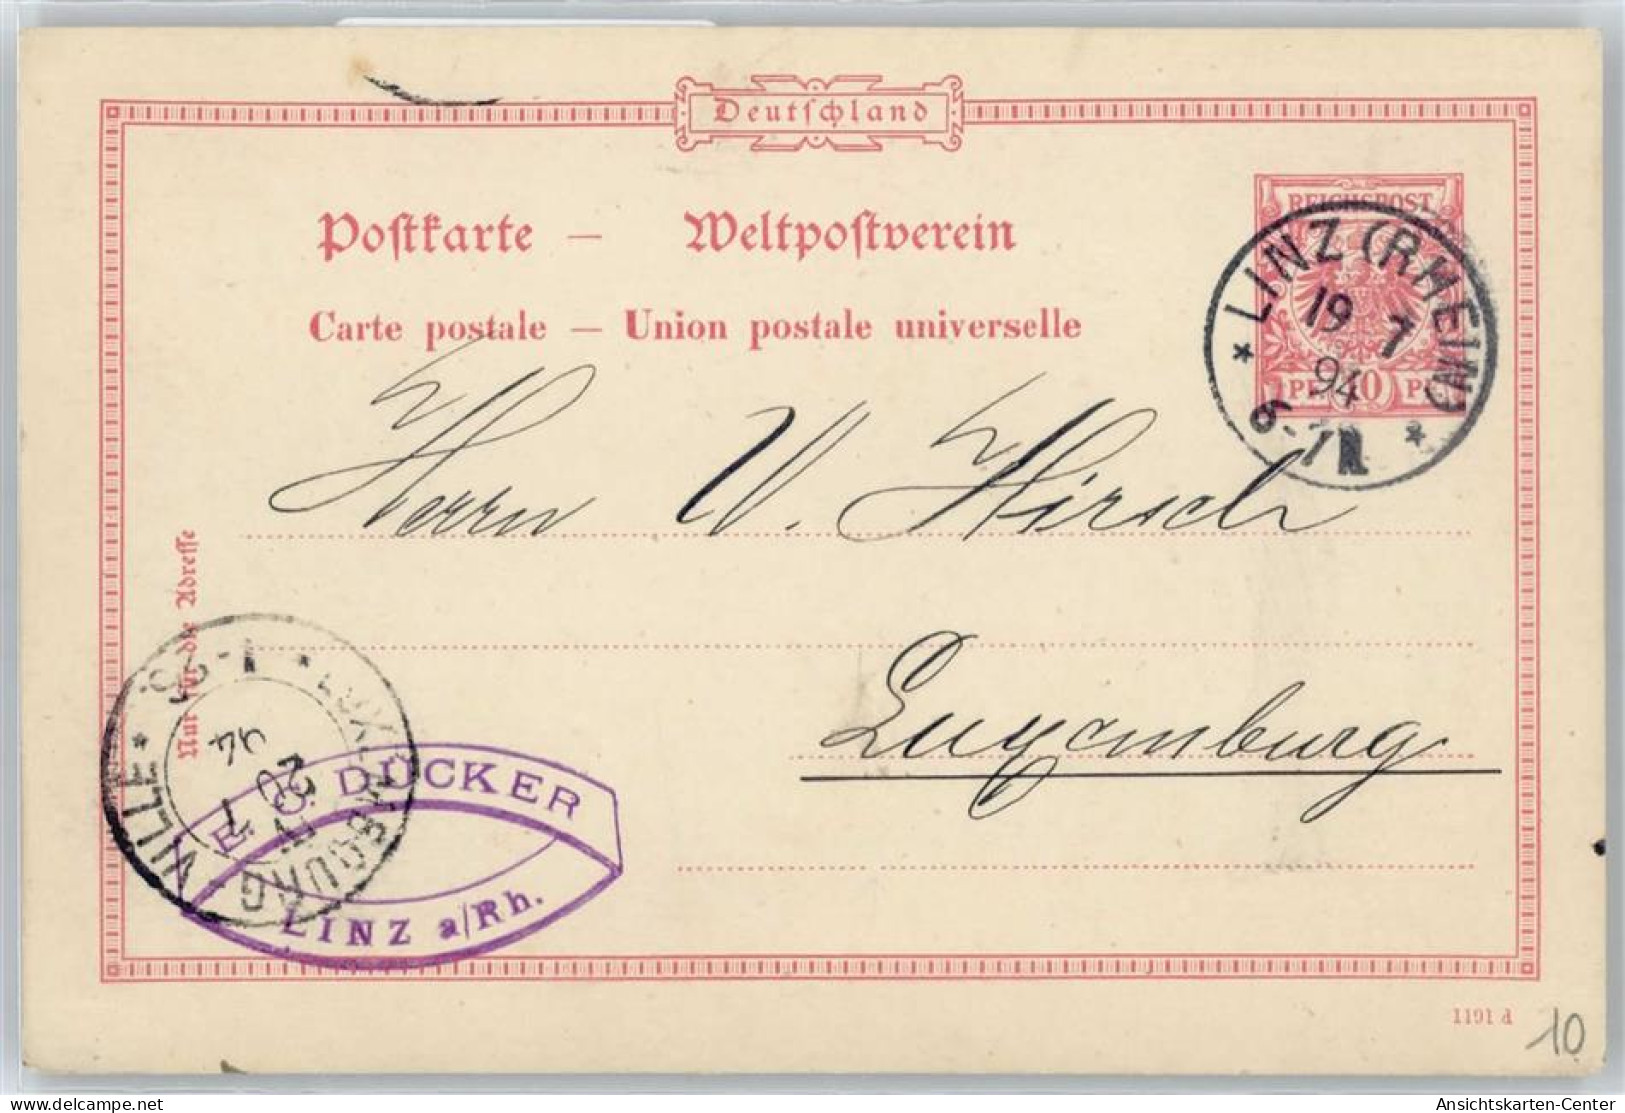 Deutschland
Postkarte — Weltpostverein
Carte postale — Union postale universelle
REICHSPOST
10
LINZ (RHEIN)
19 7
94
6-7N
Herrn W. Hirsch
Luxemburg
Nur für die Adresse
LUXEMBOURG VILLE
20 7
94
DÜCKER
LINZ a/Rh.
10
Ansichtskarten-Center
delcampe.net